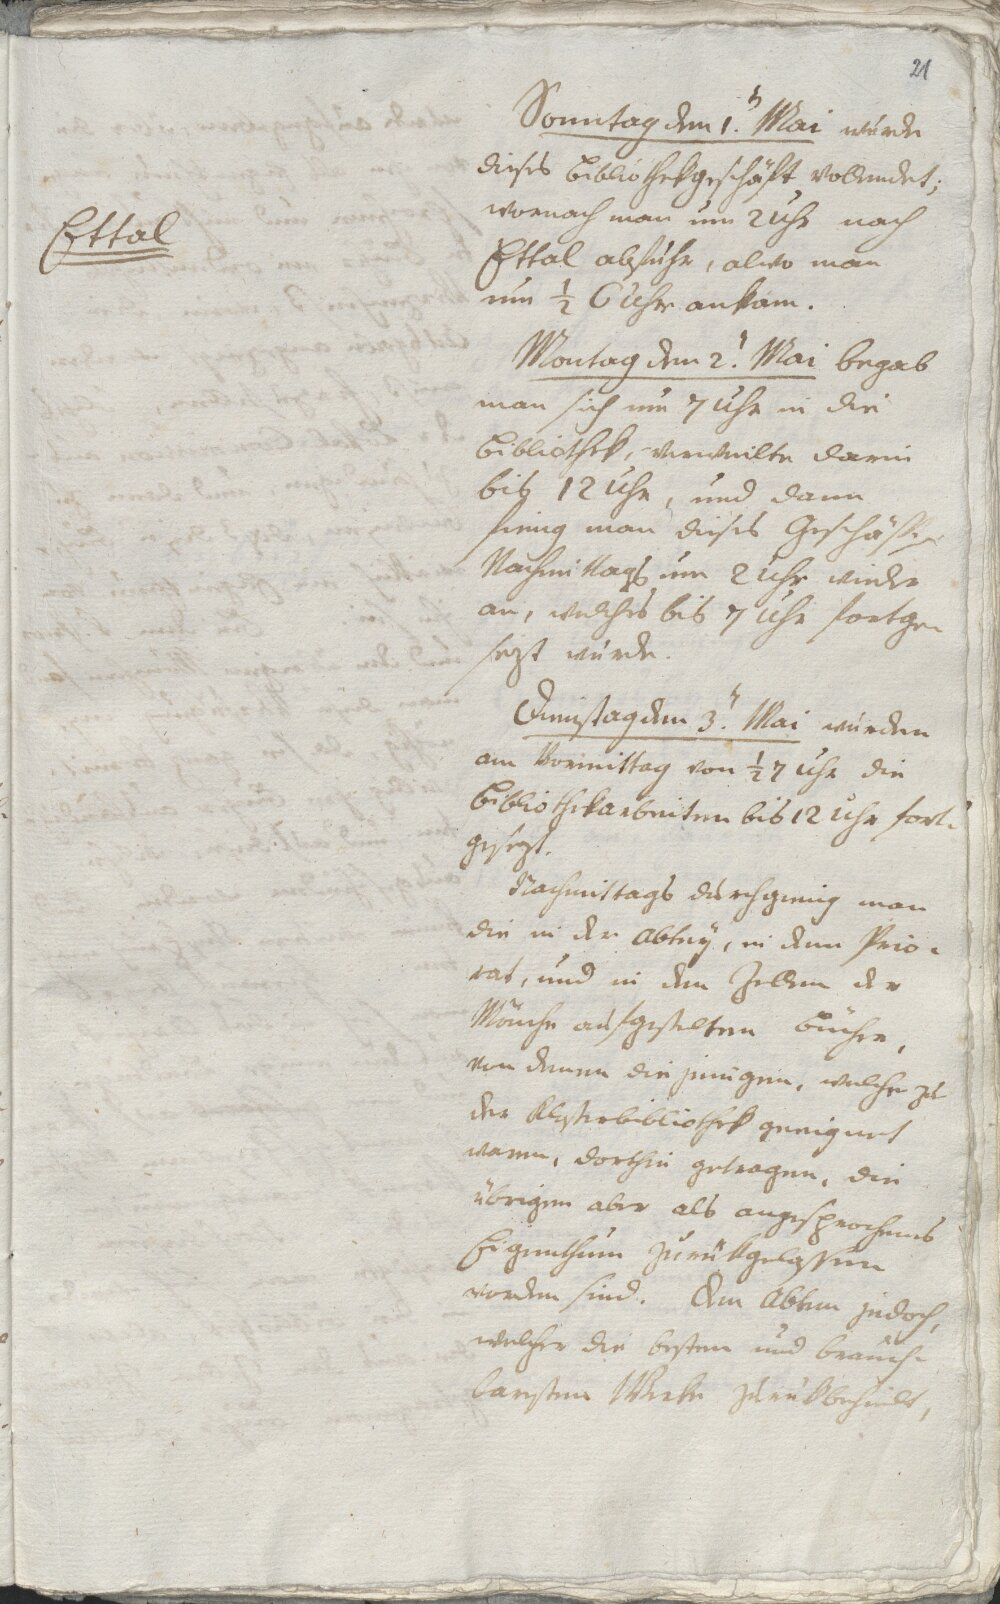 21
Sonntag den 1.n Mai wurde
dieses Bibliothekgeschäft vollendet;
wornach man um 2 Uhr nach
Ettal
Ettal abfuhr, alwo man
um ½ 6 Uhr ankam.
Montag den 2.n Mai begab
man sich um 7 Uhr in die
Bibliothek, verweilte darin
bis 12 Uhr, und dann
fieng man dieses Geschäft
Nachmittags um 2 Uhr wieder
an, welches bis 7 Uhr fortge-
sezt wurde.
Dienstag den 3.n Mai wurden
am Vormittag von ½ 7 Uhr die
Bibliothekarbeiten bis 12 Uhr fort-
gesezt.
Nachmittags durchgieng man
die in der Abtey, in dem Prio-
rat, und in den Zellen der
Mönche aufgestelten Bücher,
von denen diejenigen, welche zu
der Klosterbibliothek geeignet
waren, dorthin getragen, die
übrigen aber als angesprochenes
Eigenthum zurükgelassen
worden sind. Dem Abten jedoch,
welcher die besten und brauch-
barsten Werke zurükbehielt,